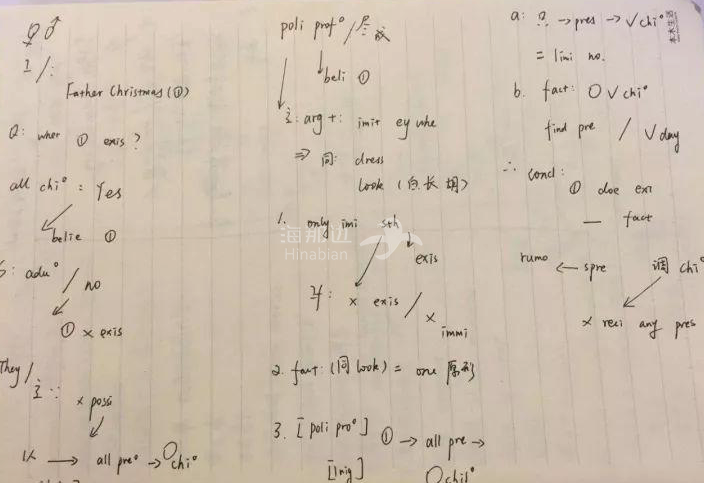 ♀♂
主/:
Father Christmas (①)
Q: wher ① exis?
all chi° : Yes
belie ①
b: adu° / no
① x exis
They /
主 ∵ x possi
→ all pre° → ○ chi°
poli prof° /
beli ①
主: arg +: imit ey whe
⇒ 同: dress
look (白长胡)
1. only imi sth
exis
x exis / x immi
2. fact: (同 look) = one 原形
3. [poli pro°] ① → all pre →
○ chil°
a: → pres → √ chi°
= limi no.
b. fact: ○ √ chi°
find pre / √ day
∴ concl:
① doe exi
— fact
rumo ← spre 调 chi°
x reci any pres
海那边
Hinabian
本木生活